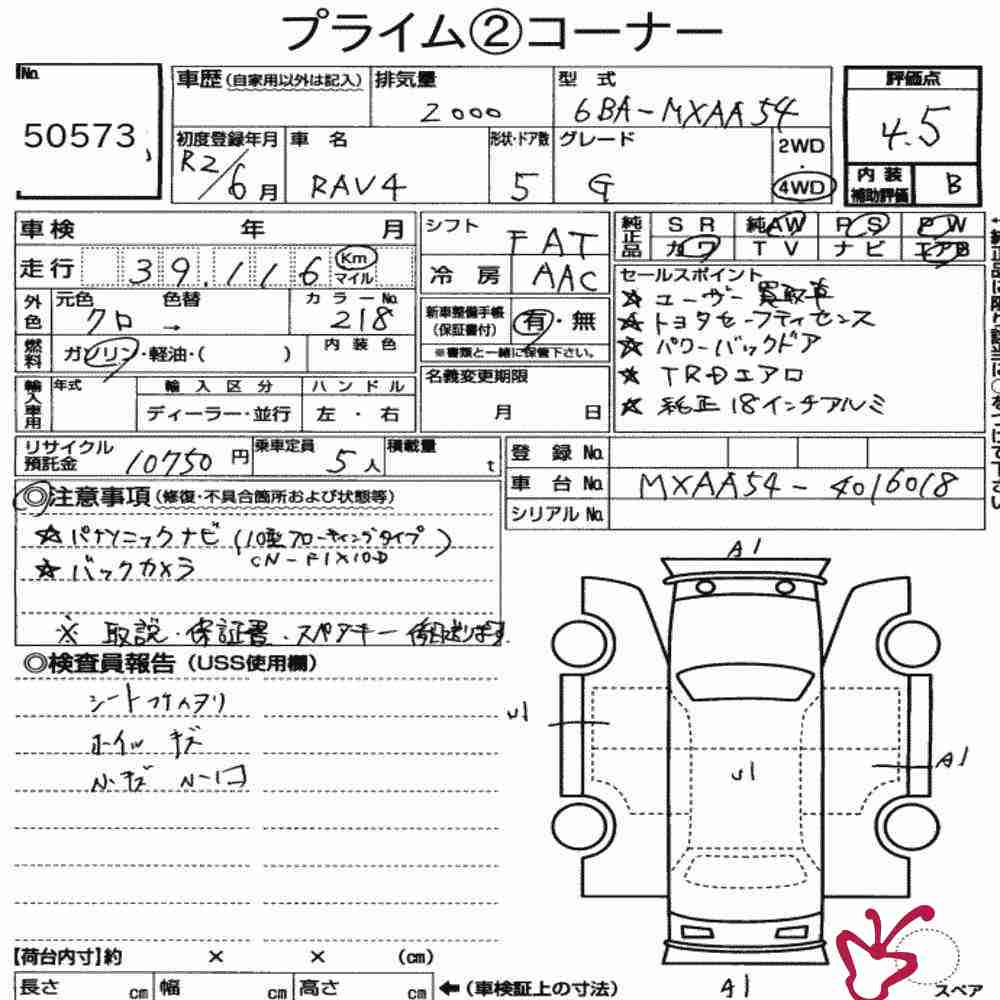 プライム②コーナー
No. 50573
車歴(自家用以外は記入)
排気量 2000
型式 6BA-MXAA54
評価点 4.5
初度登録年月 R2/6月
車名 RAV4
形状・ドア数 5
グレード G
2WD・4WD
内装補助評価 B
車検 年 月
シフト FAT
純正品 SR 純AW PS PW
カワ TV ナビ エアB
走行 39,116 Km マイル
冷房 AAC
セールスポイント
☆ユーザー買取車
☆トヨタセーフティセンス
☆パワーバックドア
☆TRDエアロ
☆純正18インチアルミ
外色 元色 クロ → 色替
カラーNo. 218
新車整備手帳(保証書付) 有・無
※書類と一緒に保管下さい。
燃料 ガソリン・軽油・( )
内装色
名義変更期限 月 日
輸入車用 年式
輸入区分 ディーラー・並行
ハンドル 左・右
リサイクル預託金 10750円
乗車定員 5人
積載量 t
登録No.
車台No. MXAA54-4016018
シリアルNo.
◎注意事項(修復・不具合箇所および状態等)
☆パナソニックナビ(10型フローティングタイプ)
CN-F1X10D
☆バックカメラ
※取説・保証書・スペアキー
◎検査員報告(USS使用欄)
シート
ホイル キズ
キズ
A1
U1
U1
A1
A1
【荷台内寸】約 × × (cm)
長さ cm 幅 cm 高さ cm ←(車検証上の寸法)
スペア